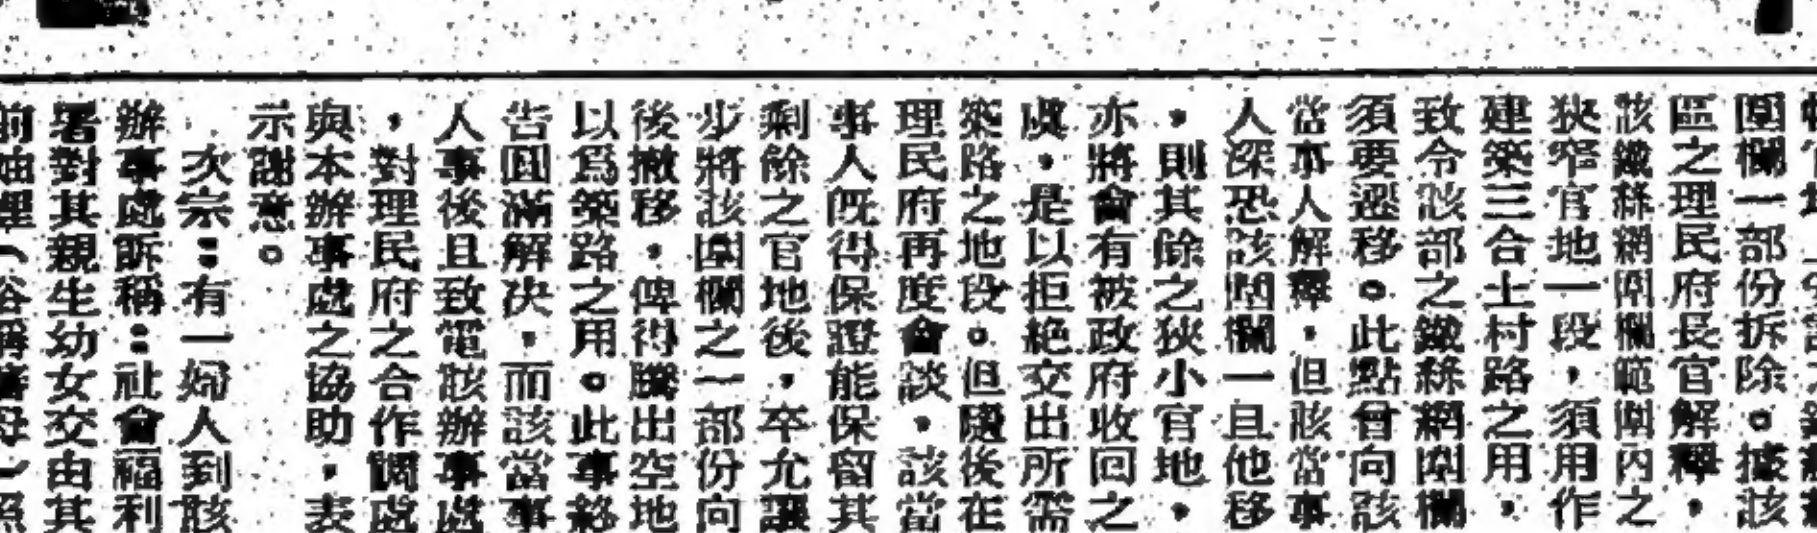 圍欄一部份拆除。據該
區之理民府長官解釋，
該鐵絲網圍欄範圍內之
狹窄官地一段，須用作
建築三合土村路之用，
致令該部之鐵絲網圍欄
須要遷移。此點曾向該
當事人解釋，但該當事
人深恐該圍欄一旦他移
，則其餘之狹小官地，
亦將會有被政府收回之
虞，是以拒絕交出所需
築路之地段。但隨後在
理民府再度會談，該當
事人既得保證能保留其
剩餘之官地後，卒允讓
步將該圍欄之一部份向
後撤移，俾得騰出空地
以爲築路之用。此事終
告圓滿解决，而該當事
人事後且致電該辦事處
，對理民府之合作調處
與本辦事處之協助，表
示謝意。
次宗：有一婦人到該
辦事處訴稱：社會福利
署對其親生幼女交由其